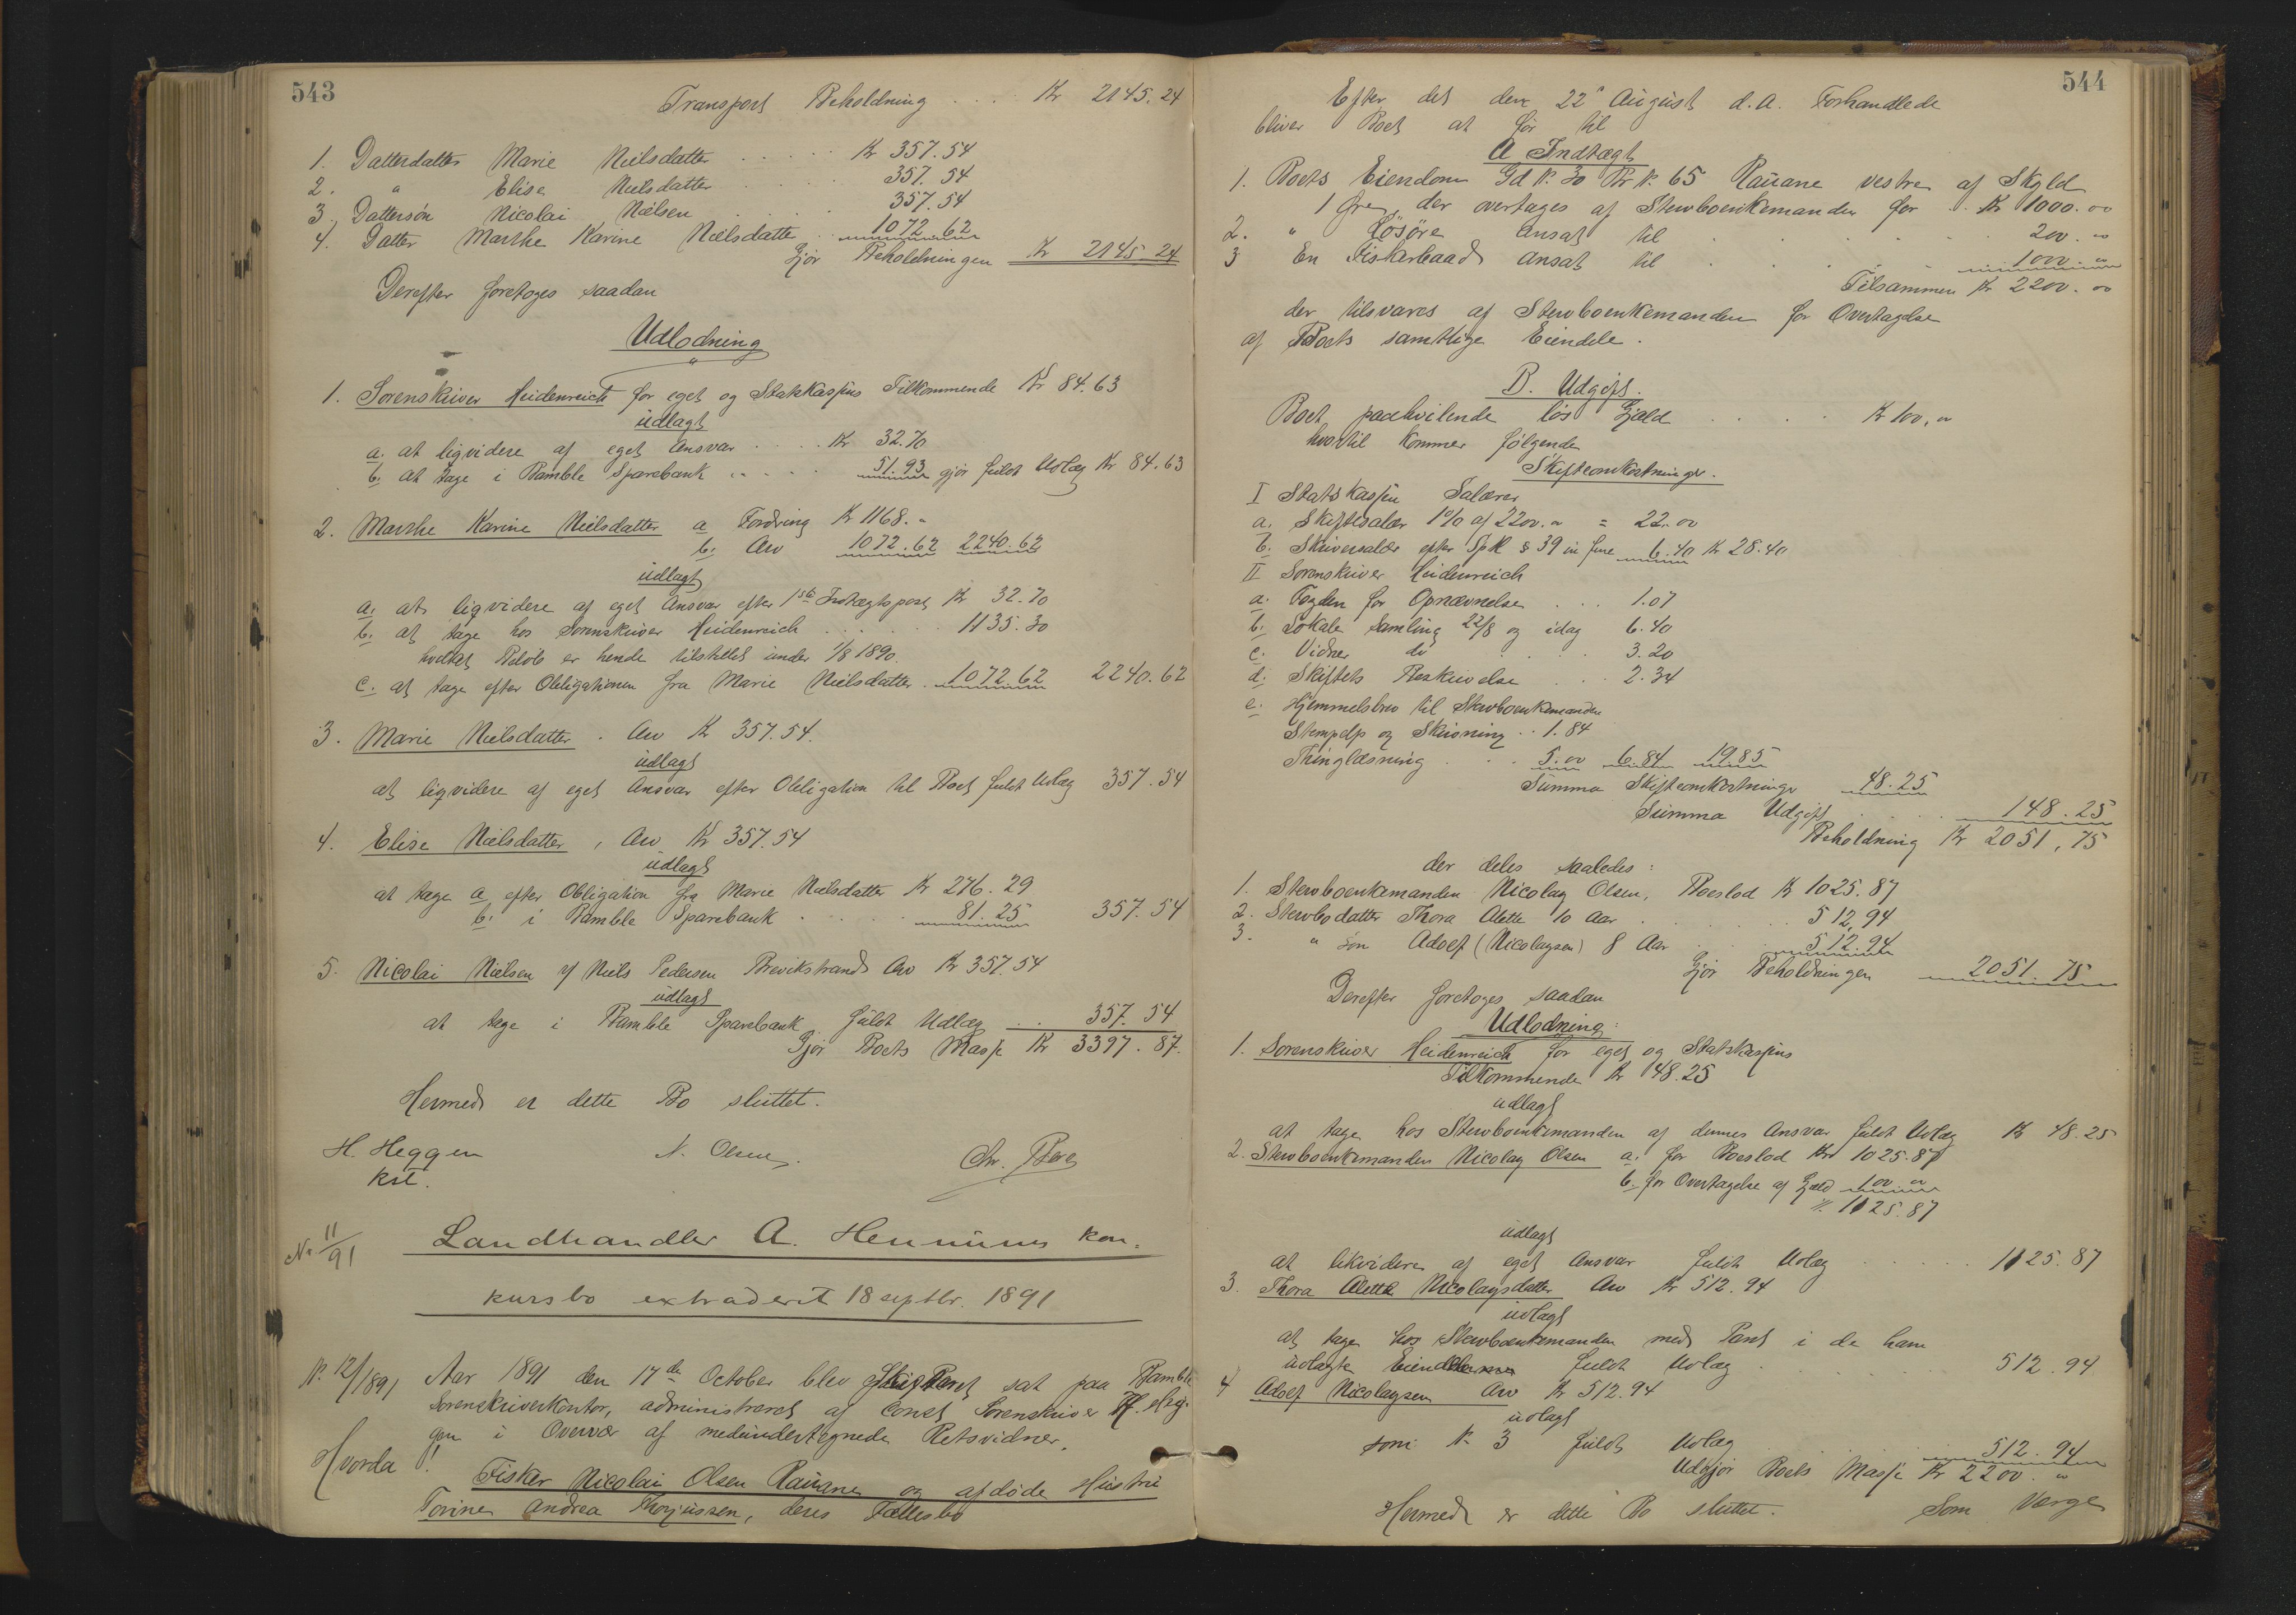 543
Transport Beholdning . . . Kr 2145.24
1. Datterdatter Marie Nielsdatter . . . . . Kr 357.54
2. " Elise Nielsdatter . . . . 357.54
3. Dattersøn Nicolai Nielsen . . . . . 357.54
4. Datter Marthe Karine Nielsdatter . . 1072.62
Gjør Beholdningen Kr 2145.24
Derefter foretoges saadan
Udlodning
1. Sorenskriver Heidenreich for eget og Statskassens Tilkommende Kr 84.63
udlagt
a. at liqvidere af eget Ansvar . . . . Kr 32.70
b. at tage i Bamble Sparebank . . . . 51.93 gjør fuldt Udlæg Kr 84.63
2. Marthe Karine Nielsdatter a Fordring Kr 1168. "
b. Arv 1072.62 2240.62
udlagt
a. at liqvidere af eget Ansvar efter 1ste Indtægtspost Kr 32.70
b. at tage hos Sorenskriver Heidenreich . . . . . 1135.30
hvilket Beløb er hende tilstillet under 1/8 1890.
c. at tage efter Obligationen fra Marie Nielsdatter . 1072.62 2240.62
3. Marie Nielsdatter . Arv Kr 357.54.
udlagt
at liqvidere af eget Ansvar efter Obligation til Boet fuldt Udlæg 357.54
4. Elise Nielsdatter , Arv Kr 357.54
udlagt
at tage a efter Obligation fra Marie Nielsdatter Kr 276.29
b. i Bamble Sparebank . . . . . 81.25 357.54
5. Nicolai Nielsen v/ Niels Pedersen Brevikstrand Arv Kr 357.54
udlagt
at tage i Bamble Sparebank . fuldt Udlæg . . 357.54
Gjør Boets Masse Kr 3397.87.
Hermed er dette Bo sluttet.
H. Heggen N. Olsen. Chr. Berg
kst.
No 11/91 Landhandler A. Hennums kon-
kursbo extraderit 18 septbr. 1891
No 12/1891 Aar 1891 den 17de October blev Skifteret sat paa Bamble
Sorenskriverkontor, administreret af const. Sorenskriver H. Heg-
gen i Overvær af medundertegnede Retsvidner.
Hvorda!
Fisker Nicolai Olsen Rauane og afdøde Hustru
Torine Andrea Thorjussen, deres Fællesbo
544
Efter det den 22de August d.A. Forhandlede
bliver Boet at gjør til
A Indtægt
1. Boets Eiendom Gd No. 30 Br No. 65 Rauane vestre af Skyld
1 Øre, der overtages af Stervboenkemanden for . Kr 1000.00
2. " Løsøre Ansat til . . . . . . 200. "
3 En Fiskerbaad ansat til . . . . . 1000. "
Tilsammen Kr 2200.00
der tilsvares af Stervboenkemanden for Overtagelse
af Boets samtlige Eiendele.
B. Udgift.
Boet paahvilende løs Gjæld . . . . . Kr 100. "
hvortil kommer følgende
Skifteomkostninger.
I Statskassen Salærer
a. Skiftesalær 1% af 2200. " = 22.00
b. Skriversalær efter Spl § 39 in fine 6.40 Kr 28.40
II Sorenskriver Heidenreich
a. Fogden for Opnævnelse . . . 1.07
b. Lokale Samling 22/8 og idag 6.40
c. Vidner do . . . . 3.20
d. Skiftets Beskrivelse . . . 2.34
e. Hjemmelsbrev til Stervboenkemanden
Stempelp og Skrivning . . 1.84
Thinglæsning . . . 5.00 6.84 19.85
Summa Skifteomkostninger 48.25
Summa Udgift . . . . 148.25
Beholdning Kr 2051.75
der deles saaledes :
1. Stervboenkemanden Nicolay Olsen, Boeslod Kr 1025.87
2. Stervbodatter Thora Alette 10 Aar . . . . . 512.94
3. " søn Adolf (Nicolaysen) 8 Aar . . . 512.94
Gjør Beholdningen 2051.75
Derefter foretoges saadan
Udlodning :
1. Sorenskriver Heidenreich for eget og Statskassens
Tilkommende Kr 48.25
udlagt
at tage hos Stervboenkemanden af dennes Ansvar fuldt Udlæg Kr 48.25
2. Stervboenkemanden Nicolay Olsen a. for Boeslod Kr 1025.87
b. for Overtagelse af Gjæld 100. "
1125.87
udlagt
at likvidere af eget Ansvar fuldt Udlæg . . . . . 1125.87
3. Thora Alette Nicolaysdatter Arv Kr 512.94
udlagt
at tage hos Stervboenkemanden med Pant i de ham
udlagte Eiendele fuldt Udlæg . . . . 512.94
4 Adolf Nicolaysen Arv Kr 512.94
udlagt
som No 3 fuldt Udlæg . . . . 512.94
Udgjør Boets Masse Kr 2200. "
Hermed er dette Bo sluttet. Som Værge